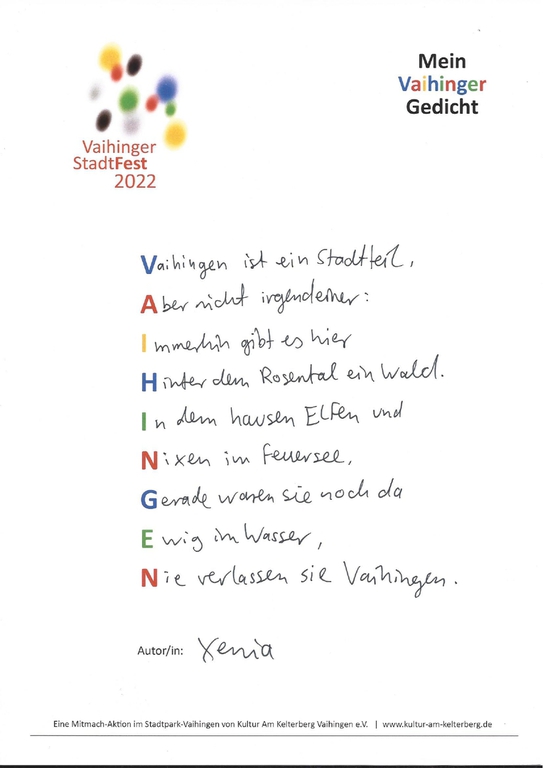 Vaihinger
StadtFest
2022
Mein
Vaihinger
Gedicht
Vaihingen ist ein Stadtteil,
Aber nicht irgendeiner:
Immerhin gibt es hier
Hinter dem Rosental ein Wald.
In dem hausen Elfen und
Nixen im Feuersee,
Gerade waren sie noch da
Ewig im Wasser,
Nie verlassen sie Vaihingen.
Autor/in: Xenia
Eine Mitmach-Aktion im Stadtpark-Vaihingen von Kultur Am Kelterberg Vaihingen e.V. | www.kultur-am-kelterberg.de